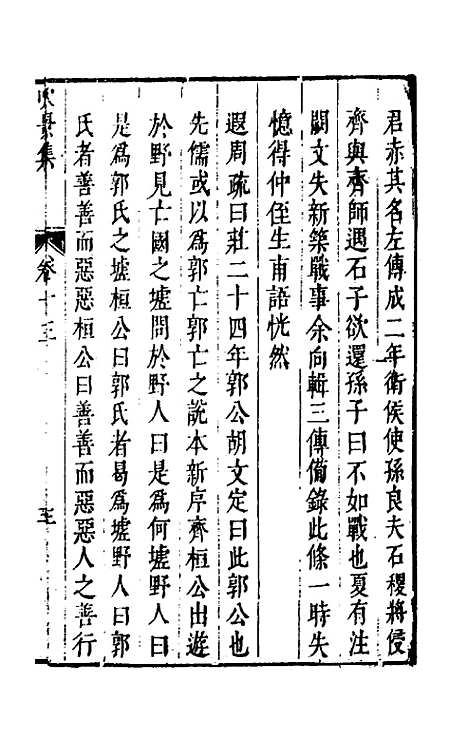 君赤其名左傳成二年衛侯使孫良夫石稷將侵
齊與齊師遇石子欲還孫子曰不如戰也夏有注
闕文失新築戰事余向輯三傳備錄此條一時失
憶得仲侄生甫語恍然
遐周疏曰莊二十四年郭公胡文定曰此郭公也
先儒或以為郭亡郭亡之說本新序齊桓公出遊
於野見亡國之墟問於野人曰是為何墟野人曰
是為郭氏之墟桓公曰郭氏者曷為墟野人曰郭
氏者善善而惡惡桓公曰善善而惡惡人之善行
景集
卷十三